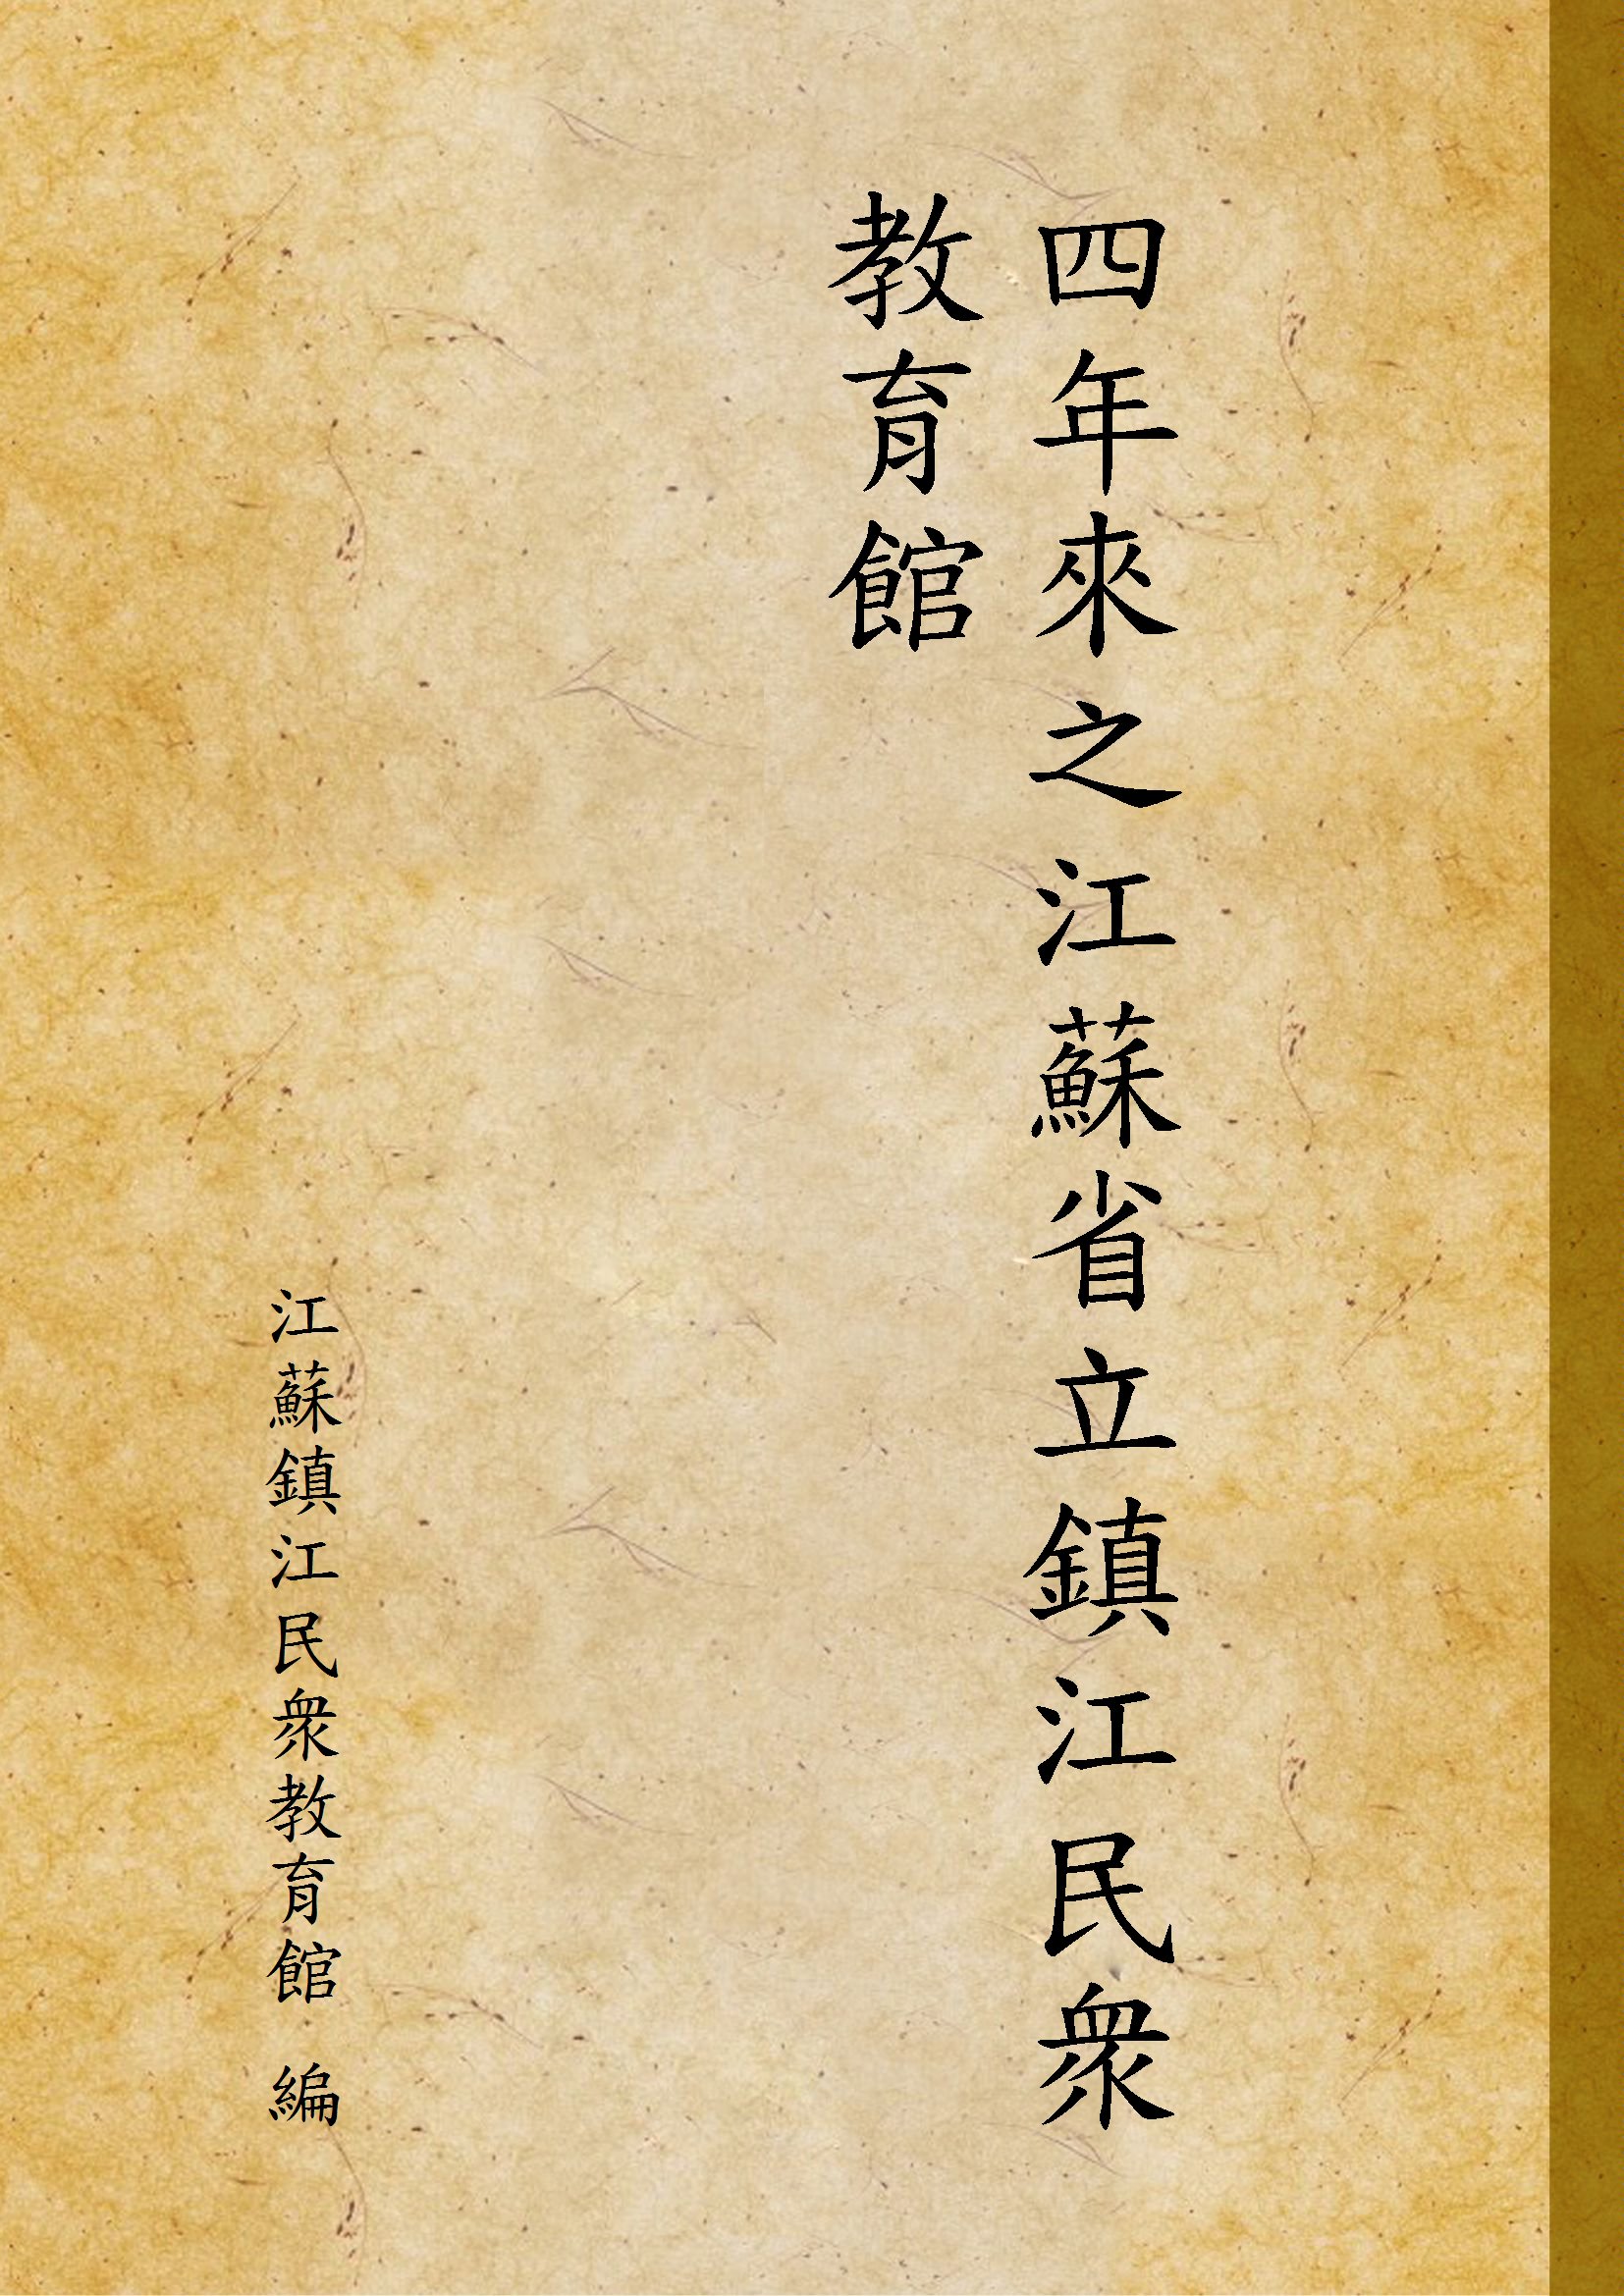 四年來之江蘇省立鎮江民衆
教育館
江蘇鎮江民衆教育館 編